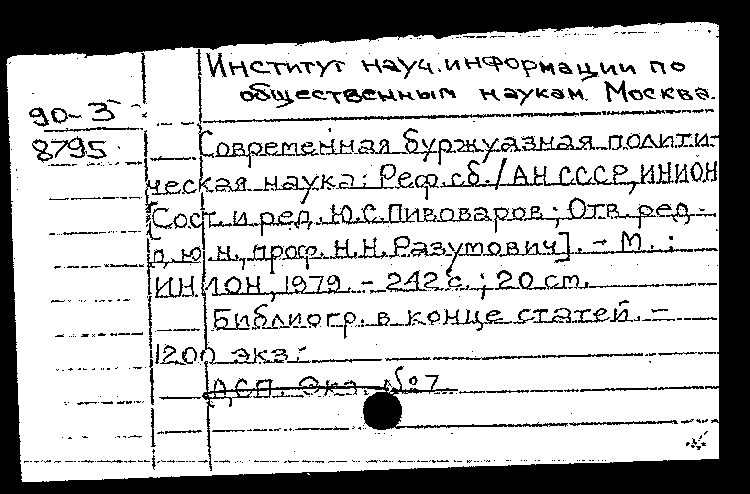 Институт науч. информации по
общественным наукам. Москва.
90-3
8795
Современная буржуазная полити-
ческая наука: Реф. сб./АН СССР, ИНИОН
[Сост. и ред. Ю.С. Пивоваров; Отв. ред.-
д.ю.н., проф. Н.Н. Разумович]. - М.:
ИНИОН, 1979. - 242 с.; 20 см.
Библиогр. в конце статей. -
1200 экз.
ДСП. Экз. № 7